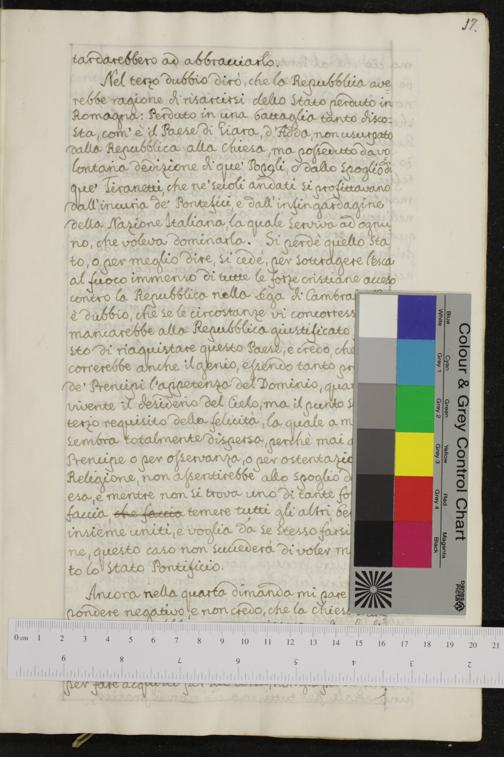 37.
tardarebbero ad abbracciarlo.
Nel terzo dubbio dirò, che la Repubblica ave
rebbe ragione di risarcirsi dello Stato perduto in
Romagna: Perduto in una battaglia tanto disco-
sta, com' è il Paese di Giara, d'Adda, non usurpato
dalla Repubblica alla chiesa, ma posseduto da vo
lontaria dedizione di que' Popoli, o dallo Spoglio di
que' Tiranetti, che ne' secoli andati si profittavano
dall'incuria de' Pontefici e dall'infingardagine
della Nazione Italiana, la quale serviva ad ognu
no, che voleva dominarla. Si perdè quello Sta
to, o per meglio dire, si cedè, per sottragere l'esca
al fuoco immenso di tutte le forze cristiane acceso
contro la Repubblica nella Lega di Cambrai
è dubbio, che se le circostanze vi concorress
mancarebbe alla Repubblica giustificato
sto di riaquistare questo Paese, e credo, che
correrebbe anche il genio, essendo tanto pr
de' Prencipi l'appetenza del Dominio, quan
vivente il desiderio del Cielo, ma il punto s
terzo requisito della felicità, la quale a m
sembra totalmente dispersa, perchè mai a
Prencipe o per osservanza, o per ostentazio
Religione, non assentirebbe allo spoglio d
esa, e mentre non si trova uno di tante fo
faccia che faccia temere tutti gli altri be
insieme uniti, e voglia da se stesso farsi
ne, questo caso non succederà di voler m
to lo Stato Pontificio.
Ancora nella quarta dimanda mi pare
pondere negativo, e non credo, che la chies
per fare acquisti per
Colour & Grey Control Chart
Blue Cyan Green Yellow Red Magenta
White Grey 1 Grey 2 Grey 3 Grey 4 Black
0 cm 1 2 3 4 5 6 7 8 9 10 11 12 13 14 15 16 17 18 19 20 21
9 8 7 6 5 4 3 2